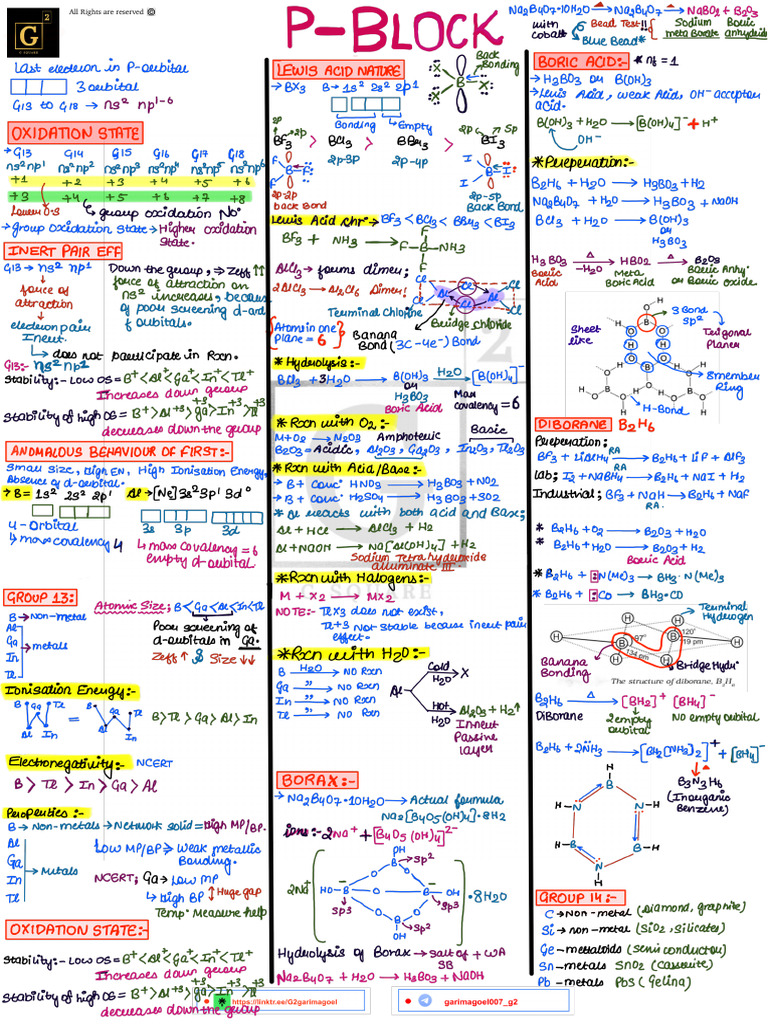 G 2
G SQUARE
All Rights are reserved ©
P-BLOCK
Last electron in P-orbital
3 orbital
G13 to G18 → ns² np¹⁻⁶
OXIDATION STATE
→ G13 G14 G15 G16 G17 G18
ns²np¹ ns²np² ns²np³ ns²np⁴ ns²np⁵ ns²np⁶
+1 +2 +3 +4 +5 +6
+3 +4 +5 +6 +7 +8
Lower O.S
group oxidation No.
→ group Oxidation State → Higher oxidation State.
INERT PAIR EFF
G13 → ns² np¹
force of attraction
electron pair Inert.
Down the group, ⇒ Zeff ↑↑
force of attraction on
ns² increases, because
of poor screening d-and
f orbitals.
↳ does not participate in Rxn.
G13:- ns² np¹
Stability:- Low OS = B⁺<Al⁺<Ga⁺<In⁺<Tl⁺
Increases down group
Stability of high OS = B⁺³>Al⁺³>Ga⁺³>In⁺³>Tl⁺³
decreases down the group
ANOMALOUS BEHAVIOUR OF FIRST:-
Small size, High EN, High Ionisation Energy
Absence of d-orbital.
→ B = 1s² 2s² 2p¹
Al → [Ne]3s²3p¹ 3d⁰
4-Orbital
↳ max covalency 4
3s 3p 3d
↳ max covalency = 6
empty d-orbital
GROUP 13:
B → Non-metal
Al
Ga
In
Tl
metals
Atomic Size; B<Ga<Al<In<Tl
Poor screening of
d-orbitals in Ga.
Zeff ↑ & Size ↓↓
Ionisation Energy:-
B Ga Tl
Al In
=
B Ga Tl
Al In
B>Tl>Ga>Al>In
Electronegativity:- NCERT
B > Tl > In > Ga > Al
Properties:-
B → Non-metals → Network solid = High MP/BP.
Al
Ga
In
Tl
→ Metals
Low MP/BP ⇒ Weak metallic
Bonding.
NCERT; Ga → Low MP
↳ High BP
Huge gap
Temp. Measure help
OXIDATION STATE:-
Stability:- Low OS = B⁺<Al⁺<Ga⁺<In⁺<Tl⁺
Increases down group
Stability of high OS = B⁺³>Al⁺³>Ga⁺³>In⁺³>Tl⁺³
decreases down the group
LEWIS ACID NATURE
→ BX3 B → 1s² 2s² 2p¹
Bonding Empty
X B X X
Back Bonding
2p 2p 2p 5p
BF3 > BCl3 > BBr3 > BI3
2p-3p 2p-4p
F B F F
I B I I
2p-2p
back Bond
2p-5p
Back Bond
Lewis Acid chr:- BF3 < BCl3 < BBr3 < BI3
BF3 + NH3 → F-B-NH3
F F
AlCl3 → forms dimer;
2AlCl3 → Al2Cl6 Dimer!
Cl Al Cl Al Cl
Cl Cl Cl
Terminal Chlorine
Bridge chloride
{Atoms in one Plane = 6}
Banana Bond (3C-4e⁻) Bond
* Hydrolysis:-
BCl3 + 3H2O → B(OH)3 H2O → [B(OH)4]⁻
or
H3BO3
Boric Acid
Max covalency = 6
* Rxn with O2:-
M + O2 → N2O3 Amphoteric Basic
B2O3 = Acidic, Al2O3, Ga2O3, In2O3, Tl2O3
* Rxn with Acid/Base:-
→ B + conc. HNO3 → H3BO3 + NO2
→ B + conc. H2SO4 → H3BO3 + SO2
* Al reacts with both acid and Base;
Al + HCl → AlCl3 + H2
Al + NaOH → Na[Al(OH)4] + H2
Sodium Tetra hydroxide
alluminate III
* Rxn with Halogens:-
M + X2 → MX2
NOTE:- TlX3 does not exist,
Tl+3 Not stable because inert pair
effect.
* Rxn with H2O:-
B H2O → NO Rxn
Ga " → NO Rxn
In " → NO Rxn
Tl " → NO Rxn
Al
Cold H2O → X
Hot H2O → Al2O3 + H2↑
Innert Passive layer
BORAX:-
→ Na2B4O7·10H2O → Actual formula
Na2[B4O5(OH)4]·8H2
ions:- 2Na⁺ + [B4O5(OH)4]²⁻
2Na⁺
OH
B sp2
O O
HO-B O B-OH
sp3 sp3
O O
B sp2
OH
·8H2O
Hydrolysis of Borax → salt of + WA
SB
Na2B4O7 + H2O → H3BO3 + NaOH
Na2B4O7·10H2O → Na2B4O7 → NaBO2 + B2O3
with cobalt
Bead Test!!
Blue Bead*
Sodium meta Borate
Boric anhydride
BORIC ACID:- * nf = 1
→ H3BO3 or B(OH)3
→ Lewis Acid, weak Acid, OH⁻ accepter
acid.
B(OH)3 + H2O → [B(OH)4]⁻ + H⁺
OH⁻
* Preperation:-
B2H6 + H2O → H3BO3 + H2
Na2B4O7 + H2O → H3BO3 + NaOH
BCl3 + H2O → B(OH)3
or
H3BO3
H3BO3 Δ -H2O → HBO2 Δ → B2O3
Boric Acid
Meta Boric Acid
Boric Anhy.
or Boric oxide
Sheet like
3 Bond
sp²
Trigonal Planer
8 member Ring
H-Bond
DIBORANE B2H6
Preperation;
BF3 + LiAlH4 RA → B2H6 + LiF + AlF3
lab; I2 + NaBH4 RA → B2H6 + NaI + H2
Industrial; BF3 + NaH → B2H6 + NaF
RA.
* B2H6 + O2 → B2O3 + H2O
* B2H6 + H2O → B2O3 + H2
Boric Acid
* B2H6 + :N(Me)3 → BH3·N(Me)3
* B2H6 + :CO → BH3·CO
Terminal Hydrogen
97° 120°
119 pm
134 pm
Banana Bonding
Bridge Hydri.
The structure of diborane, B2H6
B2H6 Δ → [BH2]⁺ [BH4]⁻
Diborane
2 empty orbital
No empty orbital
B2H6 + 2NH3 → [BH2(NH3)2]⁺ + [BH4]⁻
Δ
B3N3H6
(Inorganic Benzene)
H
B
H N N H
B B H
N
H
GROUP 14:-
C → Non-metal (Diamond, graphite)
Si → non-metal (SiO2, Silicates)
Ge - metalloids (Semi conductor)
Sn - metals SnO2 (Cassurite)
Pb - metals PbS (Gelina)
https://linktr.ee/G2garimagoel
garimagoel007_g2